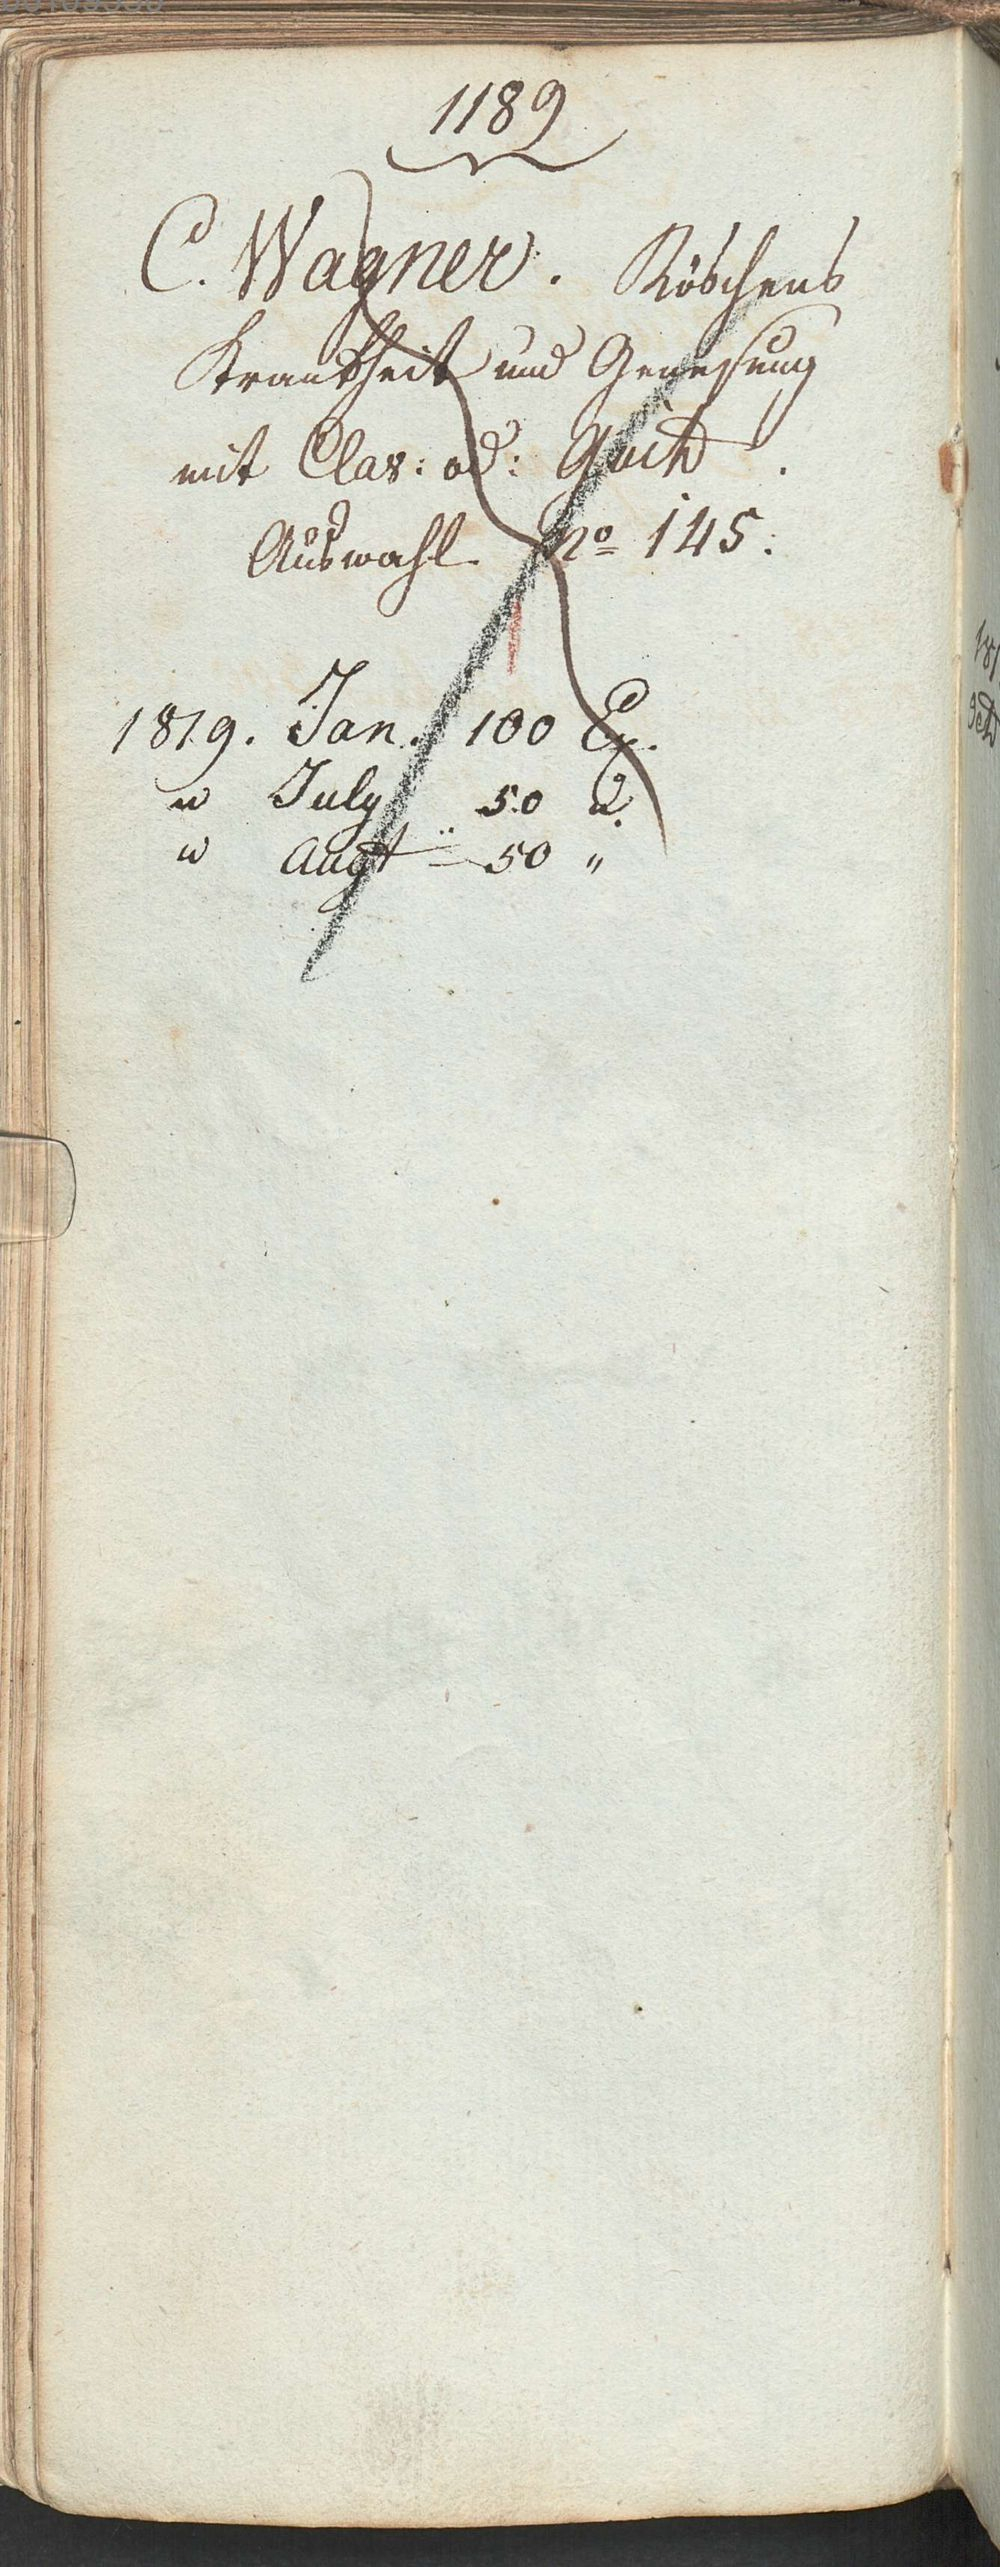 1189
C. Wagner. Röschens
Krankheit und Genesung
mit Clav: od: Guit
Auswahl No 145.
1819. Jan. 100 Ex.
" July 50 d.
" Augt 50 "